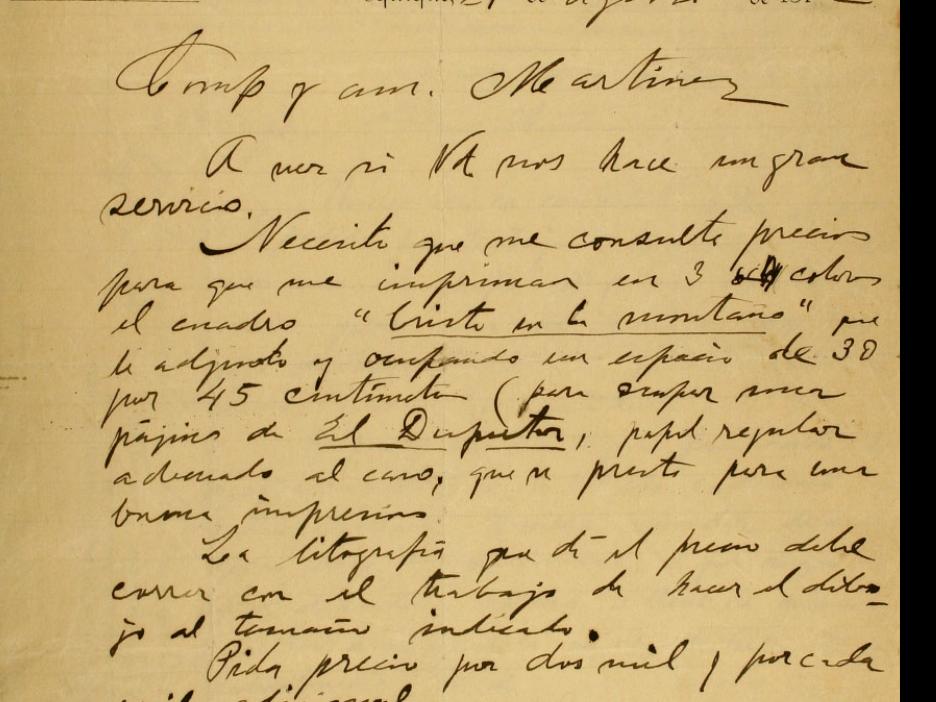 de Agosto de 191
Comp y am. Martinez
A ver si Vd. nos hace un gran
servicio.
Necesito que me consulte precios
para que me impriman en 3 colores
el cuadro "Cristo en la montaña" que
le adjunto y ocupando un espacio de 30
por 45 centímetros (para ocupar una
página de El Despertar, papel regular
adecuado al caso, que se preste para una
buena impresión
La litografía que dé el precio debe
correr con el trabajo de hacer el dibu-
jo al tamaño indicado.
Pida precio por dos mil y por cada
mil adicional